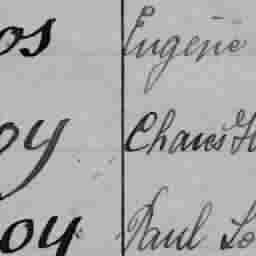 os Eugène
oy Charles H
oy Paul Lo